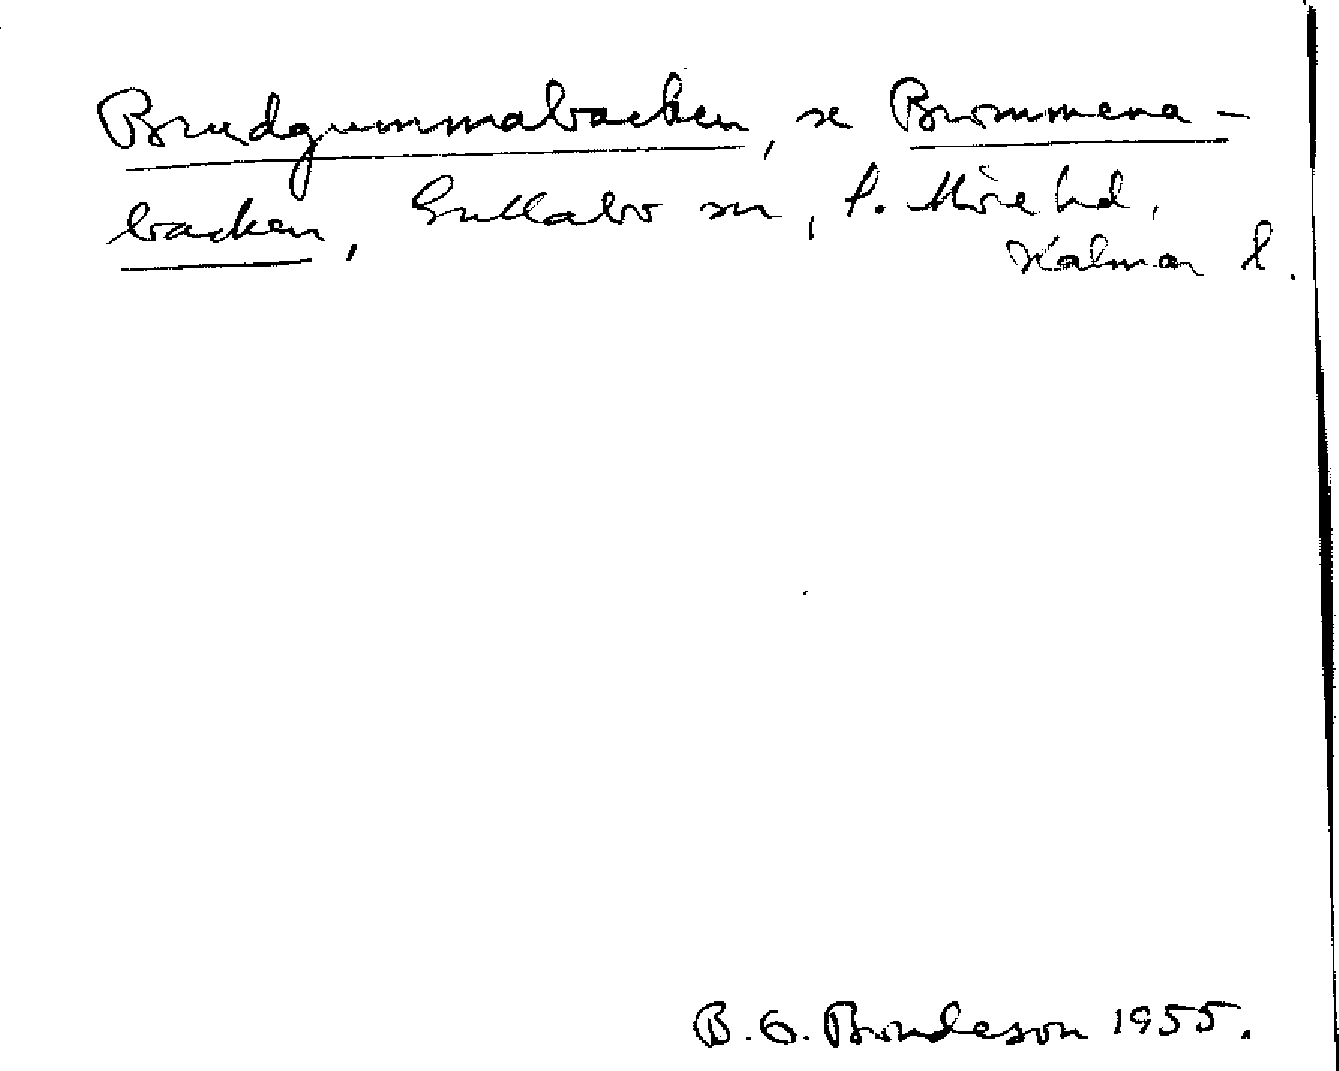 Brudgummabacken, se Brommena-
backen, Gullabo sn, S. Möre hd,
Kalmar l.
B. G. Bondeson 1955.